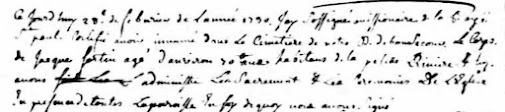 Ce Jourdhuy 28e. de febvrier de L'année 1730. Jay Soussigné missionaire de la Baye
St. paul Certifié avoir inhumé dans Le Cimetière de notre D. de bonsecours Le Corps
de Jacque fortin agé d'aviron 70 ans habitans de la petite Riviere & luy
avons administré Les Sacrements & Les Ceremonies De L'Eglise
En presence de toutes La paroisse En foy de quoy nous avons signé